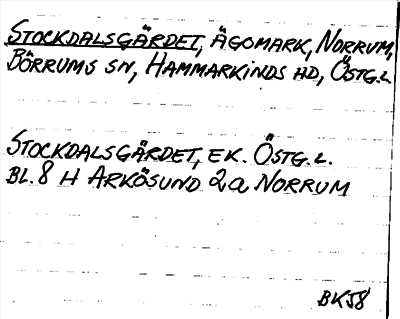 STOCKDALSGÄRDET, ÄGOMARK, NORRUM,
BÖRRUMS SN, HAMMARKINDS HD, ÖSTG.L.
STOCKDALSGÄRDET, EK. ÖSTG.L.
BL. 8 H ARKÖSUND 2a NORRUM
BK58